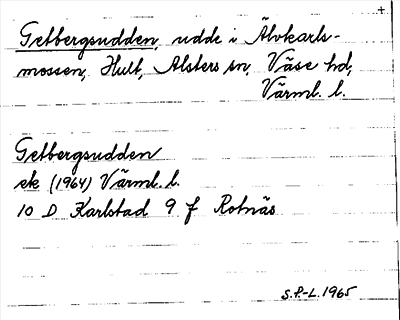 +
Getbergsudden, udde i Älvkarls-
mossen, Hult, Alsters sn, Väse hd,
Värml. l.
Getbergsudden
ek (1964) Värml. l.
10 D Karlstad 9 f Rotnäs
S.P-L. 1965